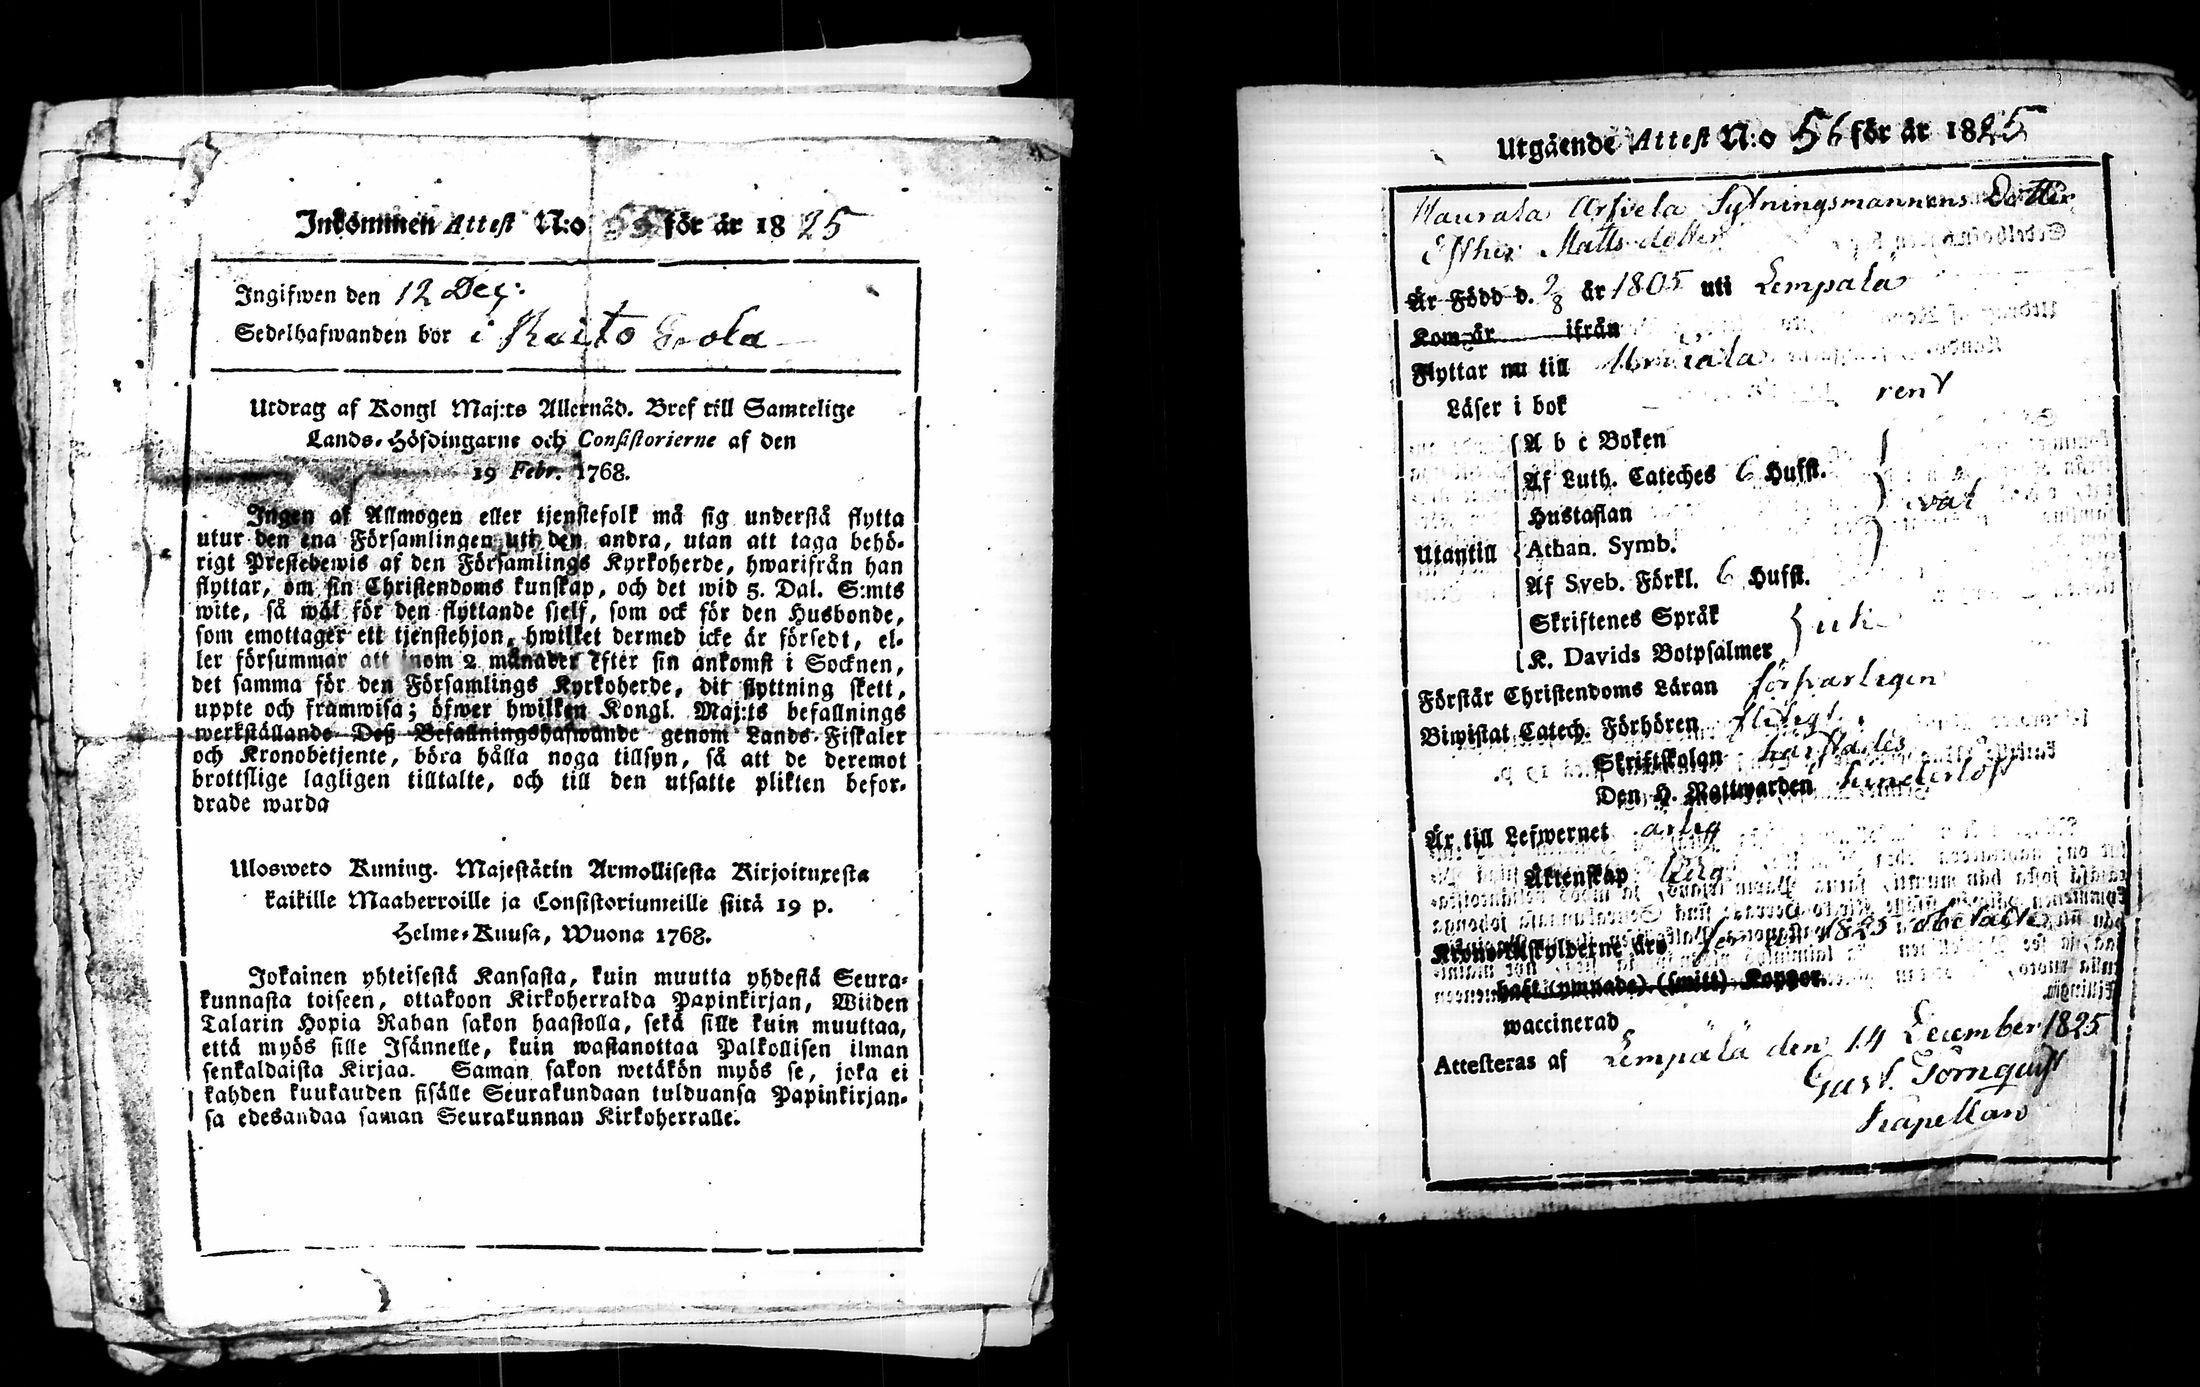 Inkommen Attest N:o 55 för är 1825
Ingifwen den 12 Dec:
Sedelhafwanden bor i
Utdrag af Kongl Maj:ts Allernåd. Bref till Samtelige
Lands-Höfdingarne och Consistorierne af den
19 Febr. 1768.
Ingen af Allmogen eller tjenstefolk må sig understå flytta
utur den ena Församlingen uti den andra, utan att taga behö-
rigt Prestebewis af den Församlings Kyrkoherde, hwarifrån han
flyttar, om sin Christendoms kunskap, och det wid 5. Dal. S:mts
wite, så wäl för den flyttande sjelf, som ock för den Husbonde,
som emottager ett tjenstehjon, hwilket dermed icke är försedt, el-
ler försummar att inom 2 månader efter sin ankomst i Socknen,
det samma för den Församlings Kyrkoherde, dit flyttning skett,
uppte och framwisa; öfwer hwilken Kongl. Maj:ts befallnings
werkställande Deß Befallningshafwande genom Lands-Fiskaler
och Kronobetjente, böra hålla noga tillsyn, så att de deremot
brottslige lagligen tilltalte, och till den utsatte plikten befor-
drade warda
Ulosweto Kuning. Majestätin Armollisesta Kirjoituxesta
kaikille Maaherroille ja Consistoriumeille siitä 19 p.
Helme-Kuusa, Wuona 1768.
Jokainen yhteisestä Kansasta, kuin muutta yhdestä Seura-
kunnasta toiseen, ottakoon Kirkoherralda Papinkirjan, Wiiden
Talarin Hopia Rahan sakon haastolla, sekä sille kuin muuttaa,
että myös sille Isännelle, kuin wastanottaa Palkollisen ilman
senkaldaista Kirjaa. Saman sakon wetäkön myös se, joka ei
kahden kuukauden sisälle Seurakundaan tulduansa Papinkirjan-
sa edesandaa saman Seurakunnan Kirkoherralle.
Utgående Attest N:o 56 för år 1825
Arfvela Sytningsmannens Dotter
Esther Matts dotter
Är Född d. 2/8 år 1805 uti Lempala
Kom år ifrån
Flyttar nu till
Läser i bok rent
Utantill
A b c Boken
Af Luth. Cateches 6 Hufst.
Hustaflan
Athan. Symb.
Af Sveb. Förkl. 6 Hufst.
Skriftenes Språk
K. Davids Botpsalmer
Förstår Christendoms Läran försvarligen
Biwistat Catech. Förhören flitigt
Skriftskolan
Den H. Nattwarden
Är till Lefwernet ärlig
Äktenskap ledig
Krono Utskylderne års för år 1825 obetalte
haft (ympade) (smitt) Koppor.
waccinerad
Attesteras af Lempälä den 14 December 1825
Gust. Törnquist
Kapellan